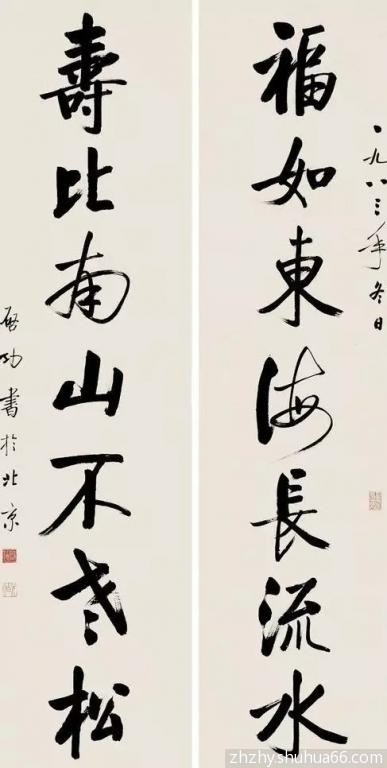 一九八三年冬日
福如東海長流水
壽比南山不老松
啓功書於北京
zhzhy.shuhua66.com